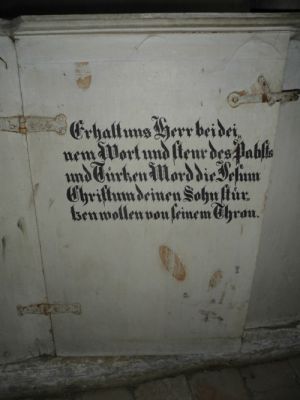 Erhalt uns Herr bei dei„
nem Wort und steur des Pabsts
und Türken Mord die Jesum
Christum deinen Sohn stür„
tzen wollen von seinem Thron.